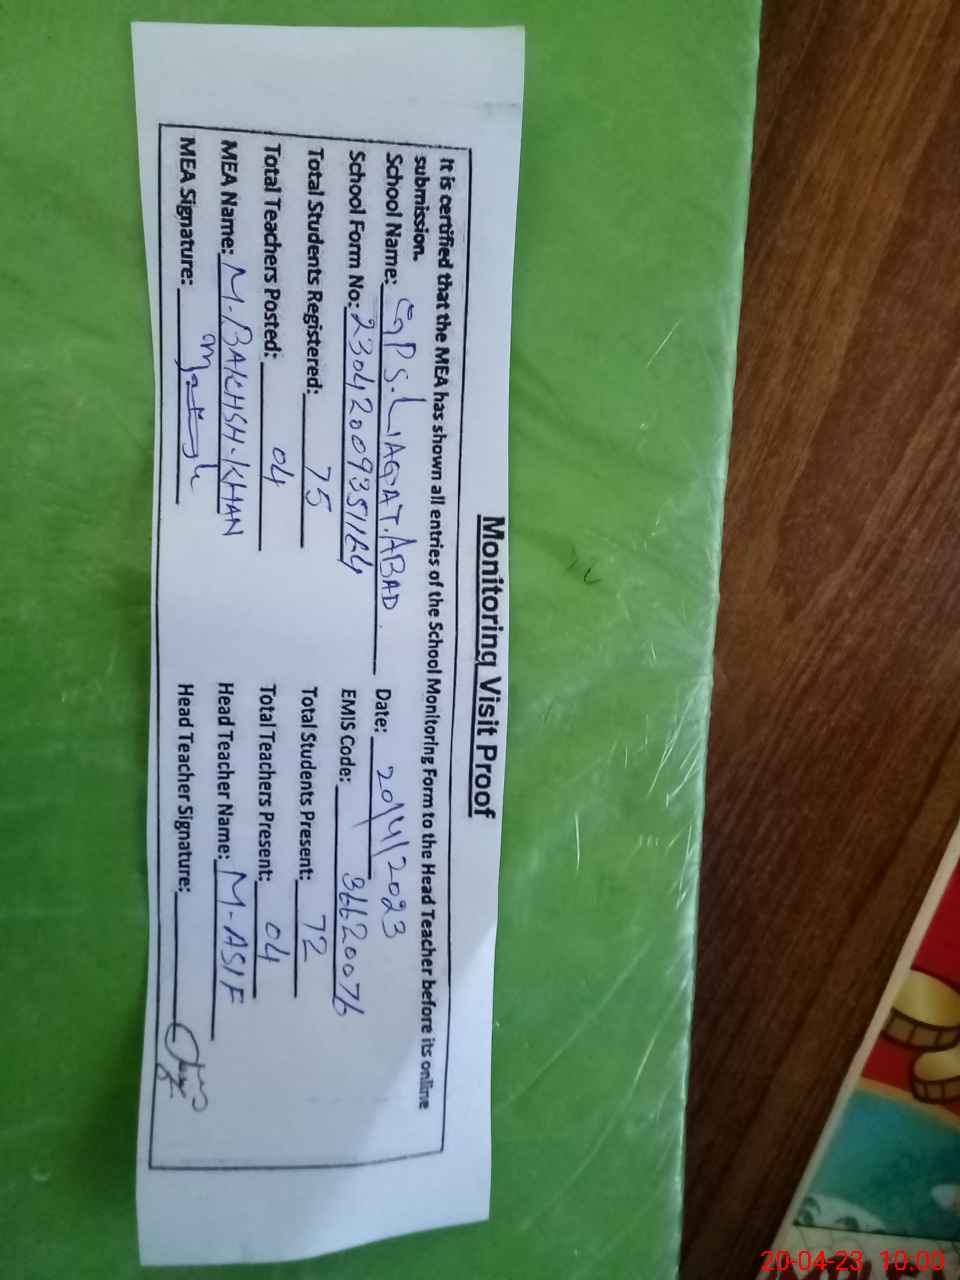 Monitoring Visit Proof
It is certified that the MEA has shown all entries of the School Monitoring Form to the Head Teacher before its online
submission.
School Name: GPS. LIAQAT. ABAD. Date: 20/4/2023
School Form No: 23042009351164 EMIS Code: 36620076
Total Students Registered: 75 Total Students Present: 72
Total Teachers Posted: 04 Total Teachers Present: 04
MEA Name: M-BAKHSH-KHAN Head Teacher Name: M-ASIF
MEA Signature: Head Teacher Signature:
20-04-23 10:00